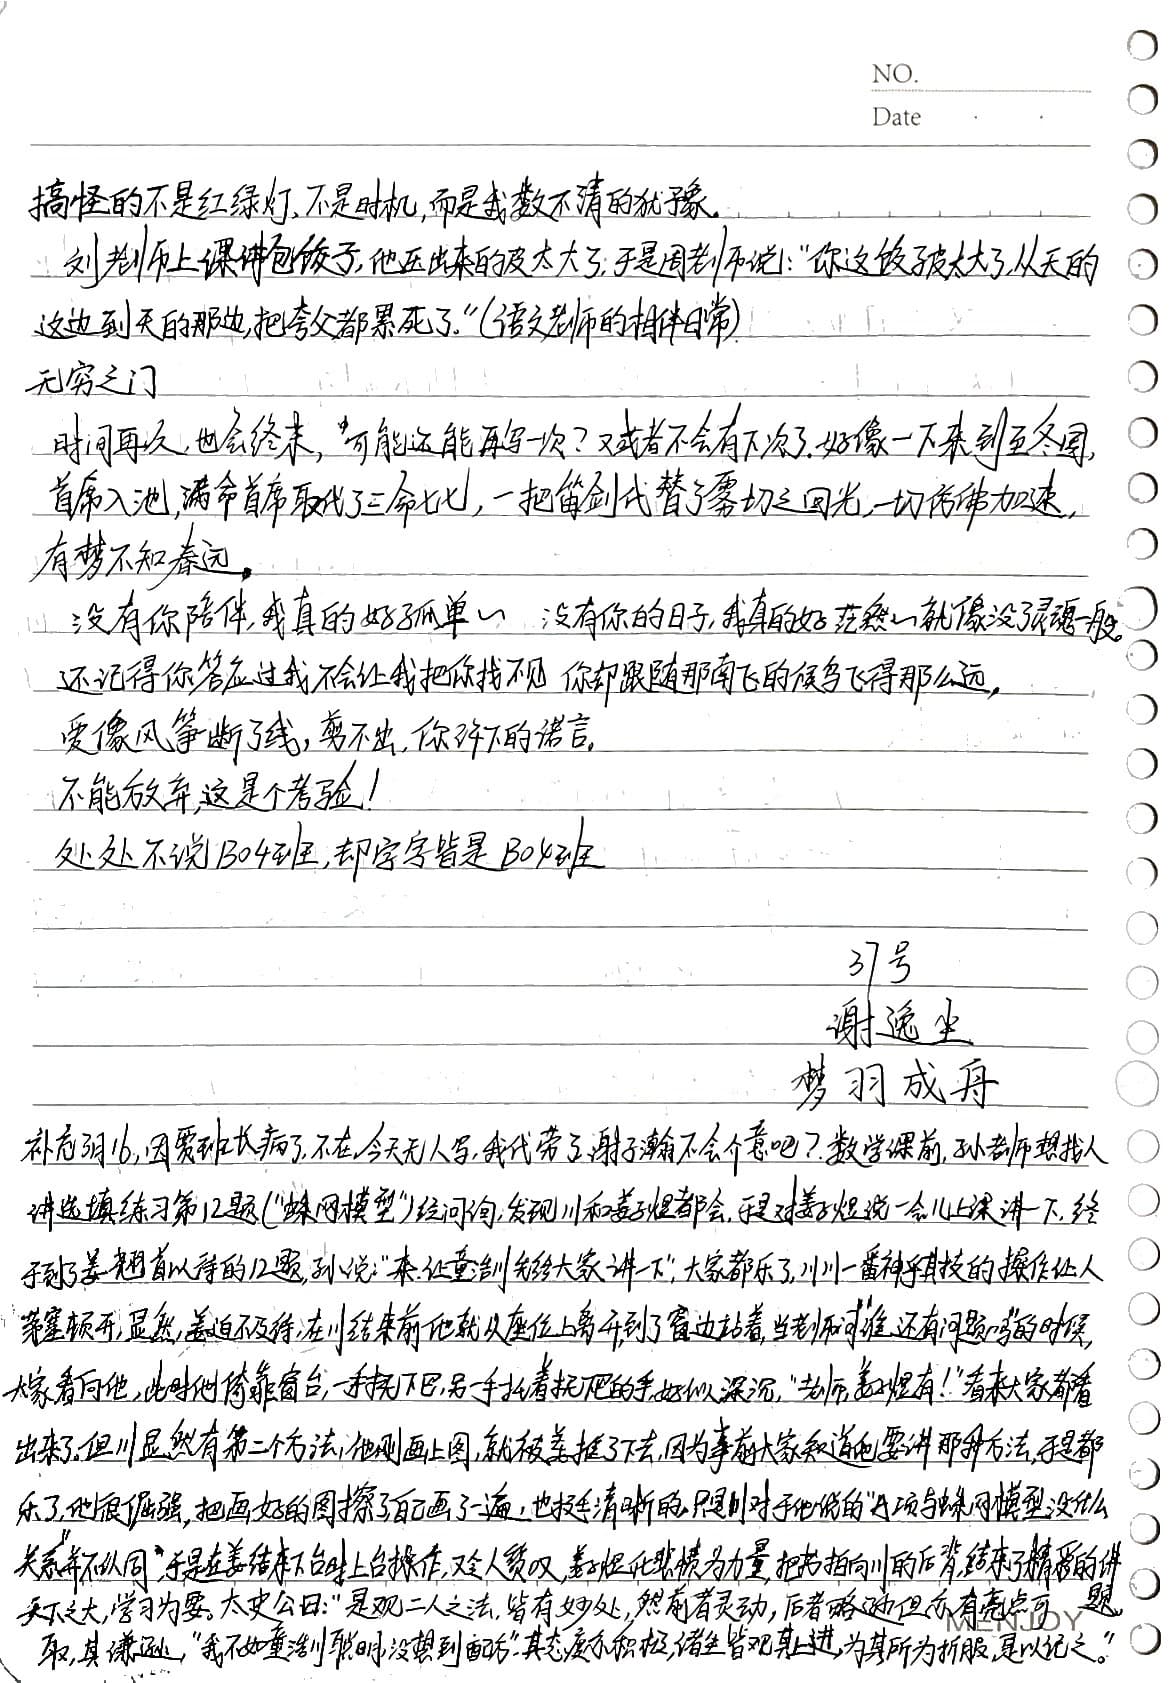 NO.
Date
搞怪的不是红绿灯、不是时机，而是我数不清的犹豫。
刘老师上课讲包饺子，他压出来的皮太大了，于是周老师说：“你这饺子皮太大了，从天的
这边到天的那边，把夸父都累死了。”（语文老师的相伴日常）
无穷之门
时间再次，也会终末，“可能还能再写一次？又或者不会有下次了。好像一下来到至冬国，
首席入池，满命首席取代了三命七七，一把笛剑代替了雾切之回光，一切仿佛加速，
有梦不知春远。
没有你陪伴，我真的好孤单～ 没有你的日子，我真的好茫然～就像没了灵魂一般。
还记得你答应过我不会让我把你找不见 你却跟随那南飞的候鸟飞得那么远，
爱像风筝断了线，剪不出，你许下的诺言。
不能放弃，这是个考验！
处处不说B04班，却字字皆是B04班
37号
谢逸尘
梦羽成舟
补充3月16，因贾班长病了，不在，今天无人写，我代带了，谢子瀚不会介意吧？数学课前，孙老师想找人
讲选填练习第12题（“蛛网模型”）经问询，发现川和姜子煜都会，于是对姜子煜说一会儿上课讲一下，终
于到了姜翘首以待的12题，孙说：“来，让童浩川先给大家讲一下”，大家都乐了，川川一番神乎其技的操作让人
茅塞顿开，显然，姜迫不及待，在川结束前他就从座位上离开到了窗边站着，当老师问“谁还有问题吗”的时候，
大家看向他，此时他倚靠窗台，一手抚下巴，另一手托着抚下巴的手，好似深沉，“老师，姜子煜有！”看来大家都看
出来了。但川显然有第二个方法，他刚画上图，就被姜推了下去，因为事前大家知道他要讲那种方法，于是都
乐了，他很倔强，把画好的图擦了自己画了一遍，也挺清晰的，只是川对于他说的“A项与蛛网模型没什么
关系”并不认同，于是在姜结束下台时上台操作，又令人赞叹，姜子煜化悲愤为力量，把书拍向川的后背，结束了精彩的讲
题
天下之大，学习为要。太史公曰：“是观二人之法，皆有妙处，然前者灵动，后者略逊但亦有亮点可
取，其谦逊，“我不如童浩川聪明，没想到配方”其态度亦积极，诸生皆观其上进，为其所为折服，是以记之。”
MENJOY